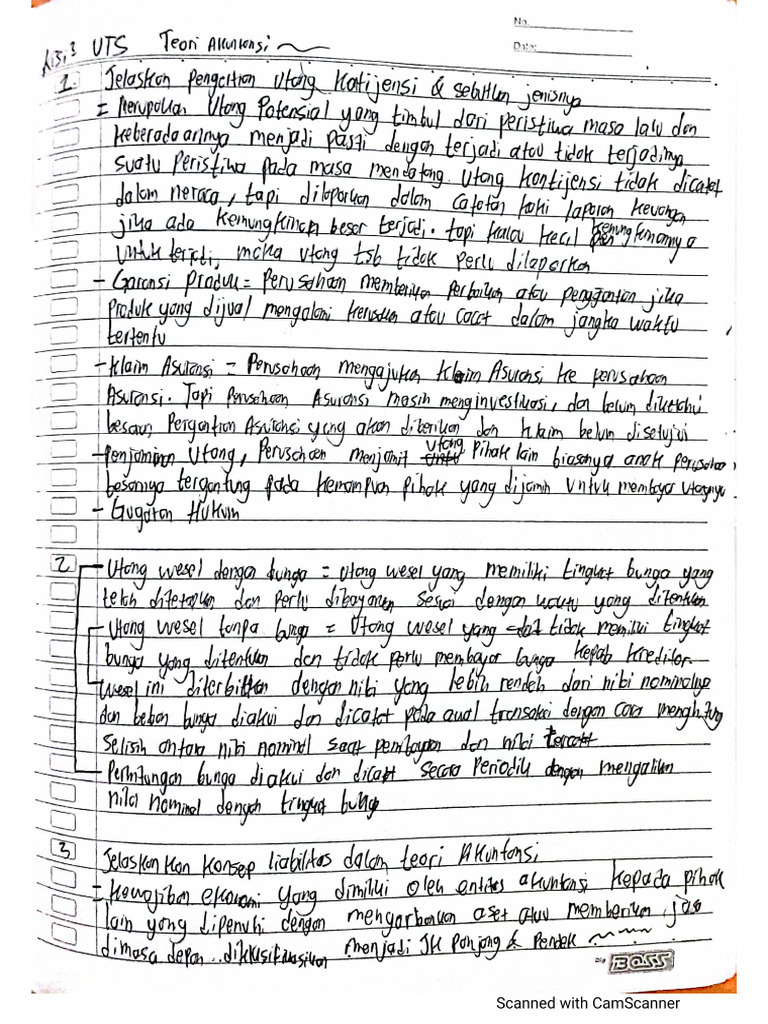 No.
Date:
Kisi² UTS Teori Akuntansi
1. Jelaskan Pengertian Utang Kotijensi & sebutkan jenisnya
= Merupakan Utang Potensial yang timbul dari peristiwa masa lalu dan
keberadaannya menjadi pasti dengan terjadi atau tidak terjadinya
suatu Peristiwa pada masa mendatang. Utang kontijensi tidak dicatat
dalam neraca, tapi dilaporkan dalam catatan kaki laporan keuangan
jika ada kemungkinan besar terjadi. tapi kalau kecil kemungkinannya
untuk terjadi, maka utang tsb tidak perlu dilaporkan
- Garansi Produk = Perusahaan memberikan Perbaikan atau penggantian jika
Produk yang dijual mengalami kerusakan atau cacat dalam jangka waktu
tertentu
- Klaim Asuransi = Perusahaan mengajukan klaim Asuransi ke perusahaan
Asuransi. Tapi Perusahaan Asuransi masih menginvestikasi, dan belum diketahui
besaran Pergantian Asuransi yang akan diberikan dan klaim belum disetujui
- Penjaminan Utang, Perusahaan menjamin utang Pihak lain biasanya anak perusahaan,
besarnya tergantung pada kemampuan pihak yang dijamin untuk membayar utangnya
- Gugatan Hukum
2 - Utang wesel dengan bunga = utang wesel yang memiliki tingkat bunga yang
telah ditetapkan dan Perlu dibayarkan sesuai dengan waktu yang ditentukan
- Utang wesel tanpa bunga = Utang wesel yang tidak memiliki tingkat
bunga yang ditentukan dan tidak perlu membayar bunga kepada kreditor.
wesel ini diterbitkan dengan nilai yang lebih rendah dari nilai nominalnya
dan beban bunga diakui dan dicatat pada awal transaksi dengan cara menghitung
selisih antara nilai nominal saat pembayaran dan nilai tercatat
- Perhitungan bunga diakui dan dicatat secara Periodik dengan mengalikan
nilai nominal dengan tingkat bunga
3 Jelaskankan konsep liabilitas dalam teori Akuntansi
= kewajiban ekonomi yang dimiliki oleh entitas akuntansi kepada pihak
lain yang dipenuhi dengan mengorbankan aset atau memberikan jasa
dimasa depan.. diklasifikasikan menjadi JK Panjang & Pendek
BOSS
Scanned with CamScanner